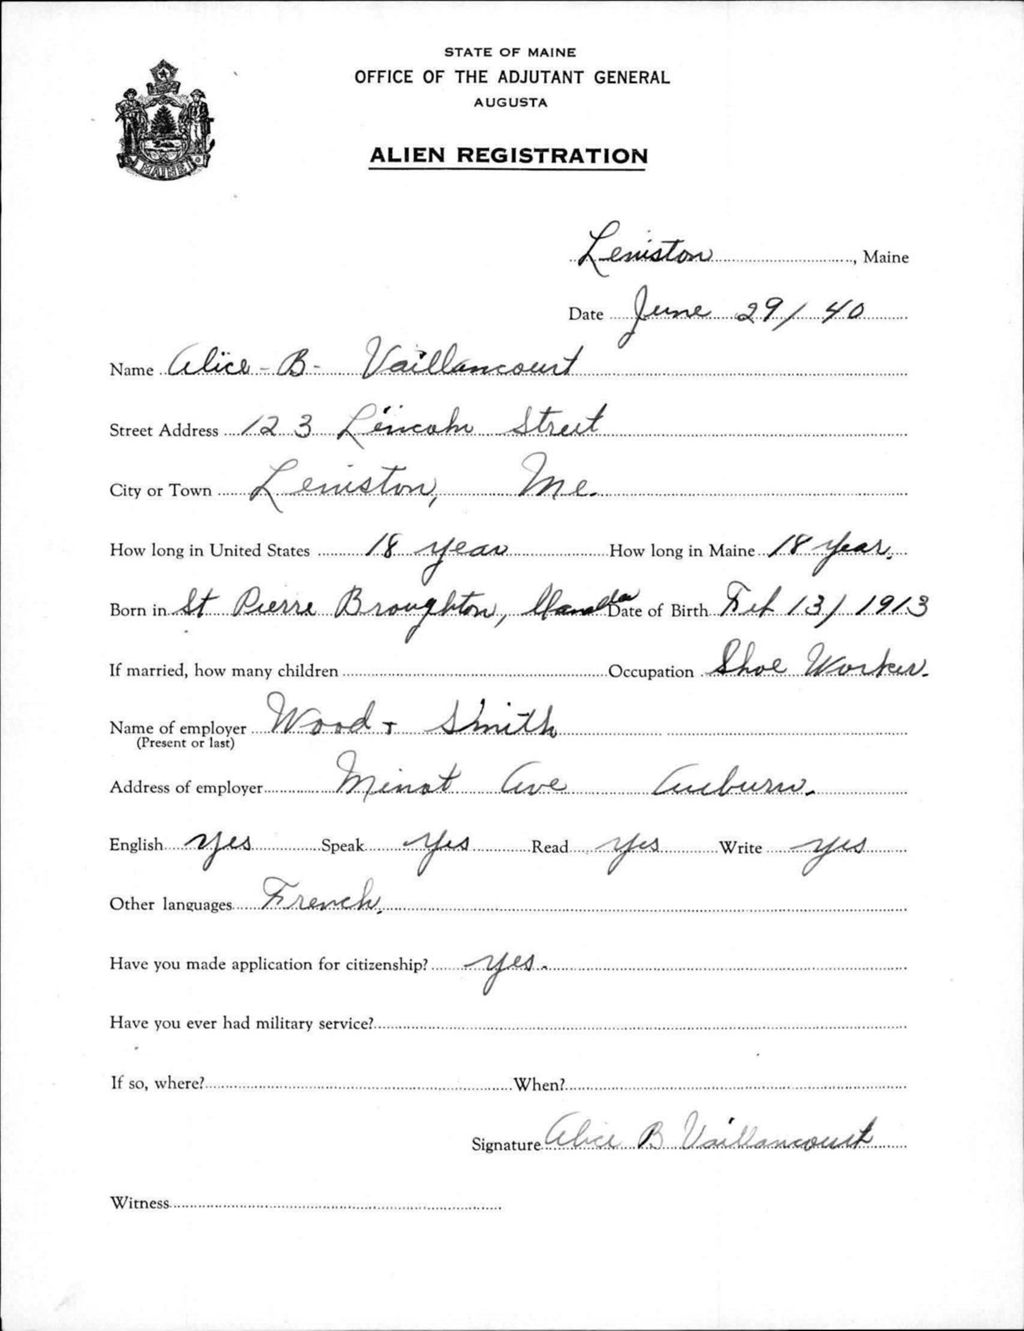 STATE OF MAINE
OFFICE OF THE ADJUTANT GENERAL
AUGUSTA
ALIEN REGISTRATION
MAINE
Lewiston, Maine
Date June 29/40
Name Alice - B - Vaillancourt
Street Address 123 Lincoln Street
City or Town Lewiston, Me.
How long in United States 18 year How long in Maine 18 year.
Born in St Pierre Broughton, Canada Date of Birth Feb 13/1913
If married, how many children Occupation Shoe Worker.
Name of employer Wood + Smith
(Present or last)
Address of employer Minot Ave Auburn.
English yes Speak yes Read yes Write yes
Other languages French.
Have you made application for citizenship? yes.
Have you ever had military service?
If so, where? When?
Signature Alice B Vaillancourt
Witness